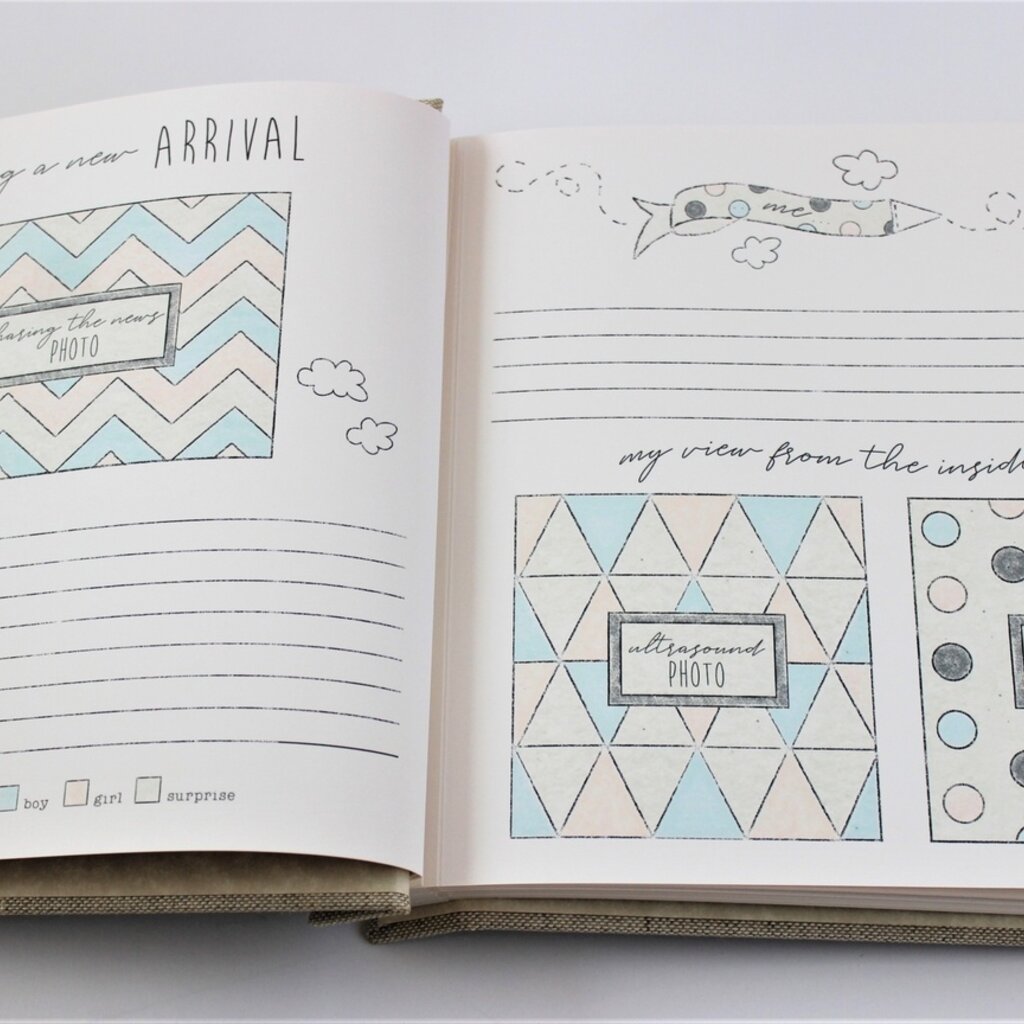 g a new ARRIVAL
haring the news
PHOTO
boy girl surprise
me
my view from the insid
ultrasound
PHOTO